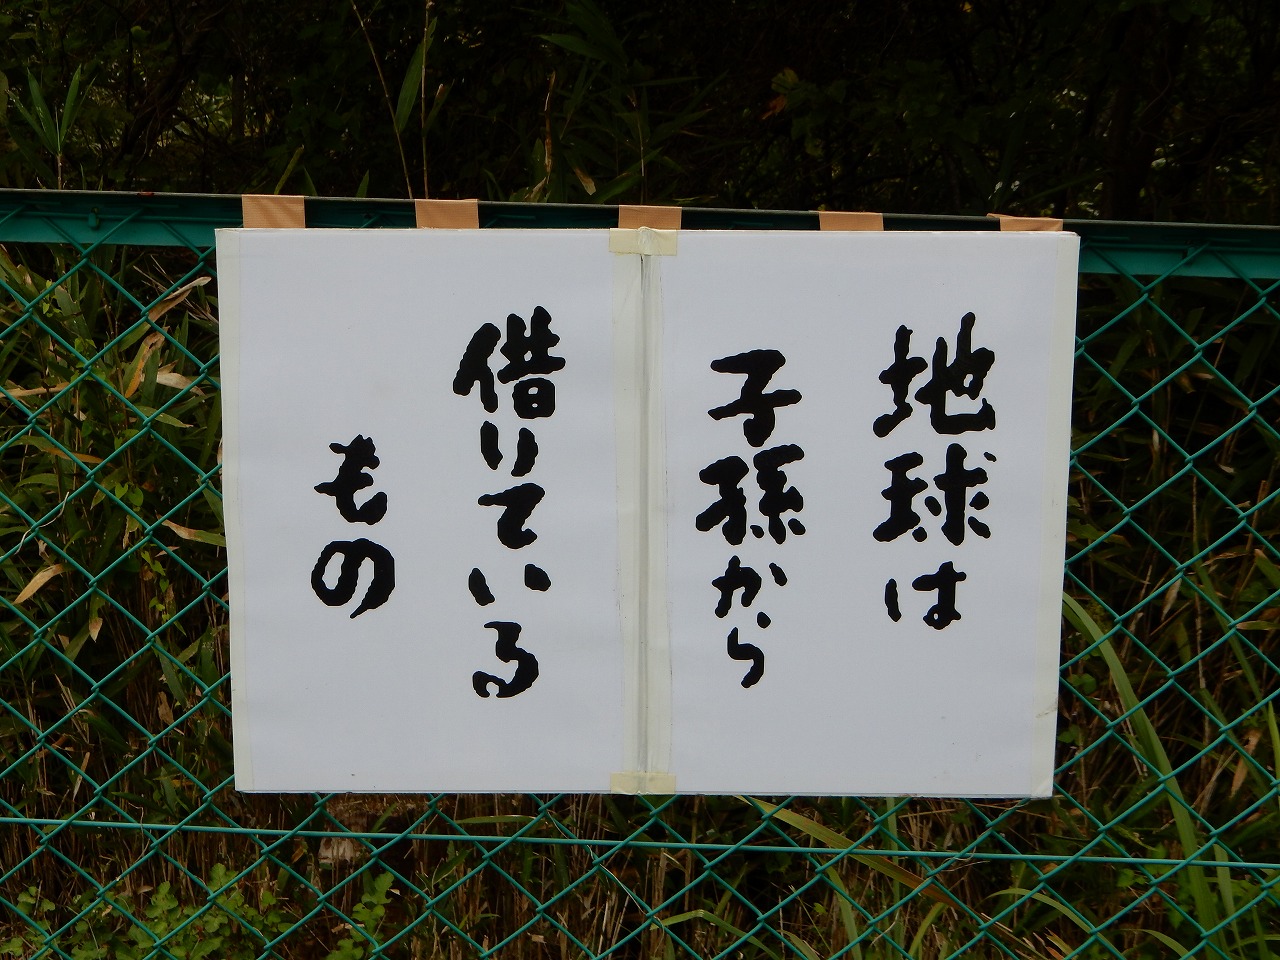 地球は
子孫から
借りている
もの